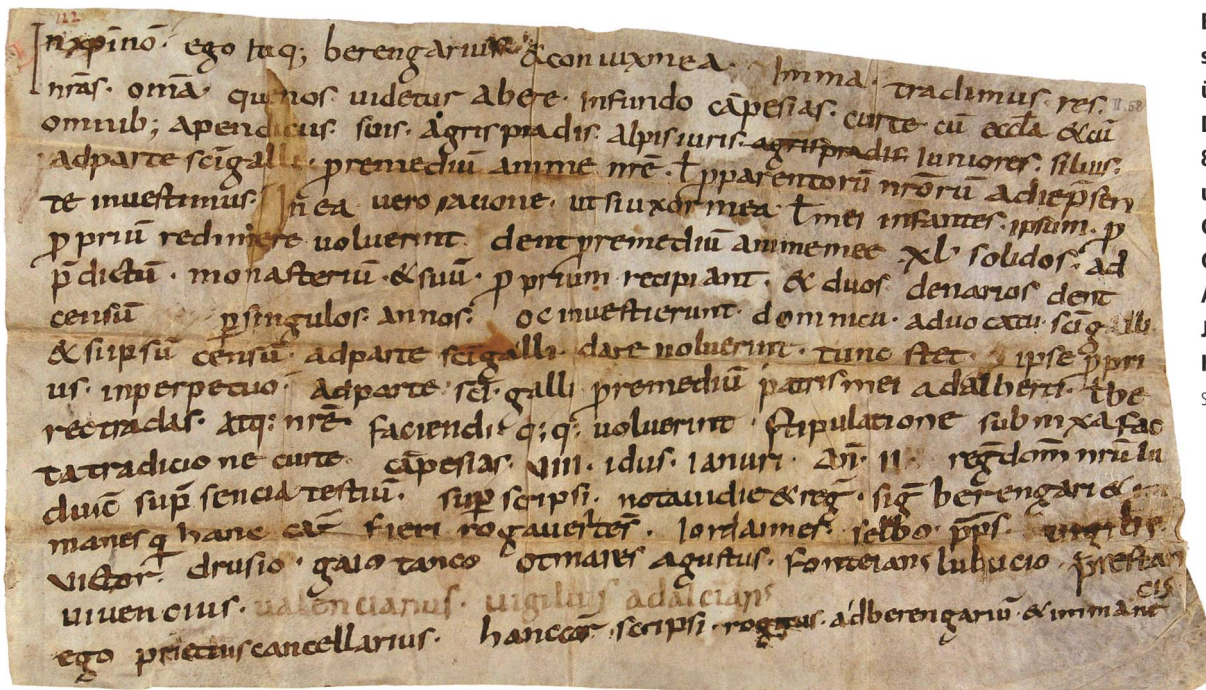 122
In xpi nō· ego itaq; berengarius & coniux mea· Imma· tradimus· res·
nrās· omā· que nos uidetur abere· infundo cāpesias· curte cū eccla & cū
II. 58
omnib; apendicus· suis· agris pradis· alpis iuris· agris pradis iuniores· siluis·
adparte scī galli· premediū anime nrē· ł p parentorū nrōrū adie psen
te inuestimus· In ea uero racione· ut si uxor mea ł mei infantes· ipsum· p
p priū redimere uoluerint· dent premediū anime mee· XL solidos· ad
p dictū· monasteriū· & suū· p prium recipiant· & duos denarios dent
censū p singulos· annos· oc inuestierunt· domnicu· aduocatu· scī galli
& si ipsū censū· adparte scī galli· dare noluerint· tunc stet· ipse p pri
us· inperpetuo· adparte· scī· galli premediū patris mei adalberti· ł be
rectradas· atq; nrē faciendi q; q; uoluerint· stipulatione subnixa fac
ta tradicione curte· cāpesias· VIII· idus· ianuri· an· II reg domni nrū lu
duic sup sencia testiū· super scripsi· notaui die & reg· sig berengari &
manes q hanc car fieri rogauer testes· Iordannes· selbo pps·
uictor· drusio· gaio tanco otmares agustus· fonteians lubucio· prestan
cis
uiuencius· ualencianus· uigilius adalcians
ego prectus cancellarius· hanc car scripsi· rogitus· ad berengariū & immane